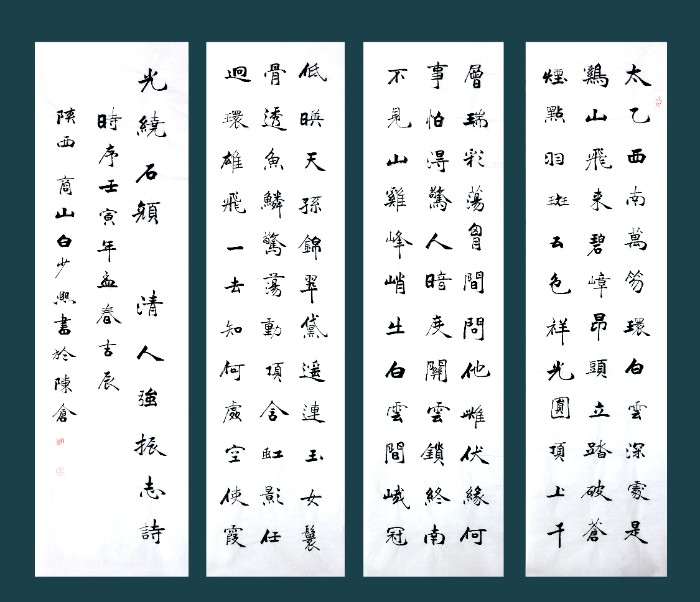 太乙西南萬笏環白雲深處是
鷄山飛来碧嶂昂頭立踏破蒼
煙點羽斑五色祥光圓頂上千
層瑞彩蕩胷間問他雌伏緣何
事怕淂驚人暗度關雲鎖終南
不見山雞峰峭出白雲間峨冠
低暎天孫錦翠黛遥連玉女鬟
骨透魚鱗驚蕩動項含虹影任
迴環雄飛一去知何處空使霞
光繞石顏 清人強振志詩
時序壬寅年孟春吉辰
陝西商山白少興書於陳倉